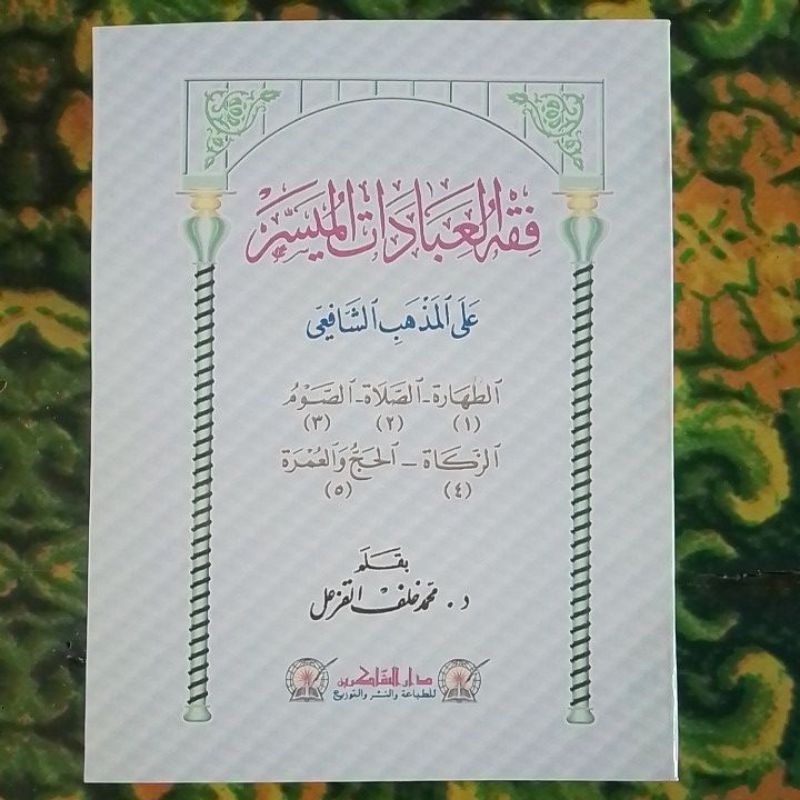 فِقْهُ الْعِبَادَاتِ الْمُيَسَّرِ
عَلَى الْمَذْهَبِ الشَّافِعِي
الطَّهَارَة - الصَّلَاة - الصَّوْمُ
(١) (٢) (٣)
الزَّكَاة - الحَجُّ وَالْعُمْرَة
(٤) (٥)
بِقَلَم
د. محمد خلف القزعل
دار الشاكرين
للطباعة والنشر والتوزيع